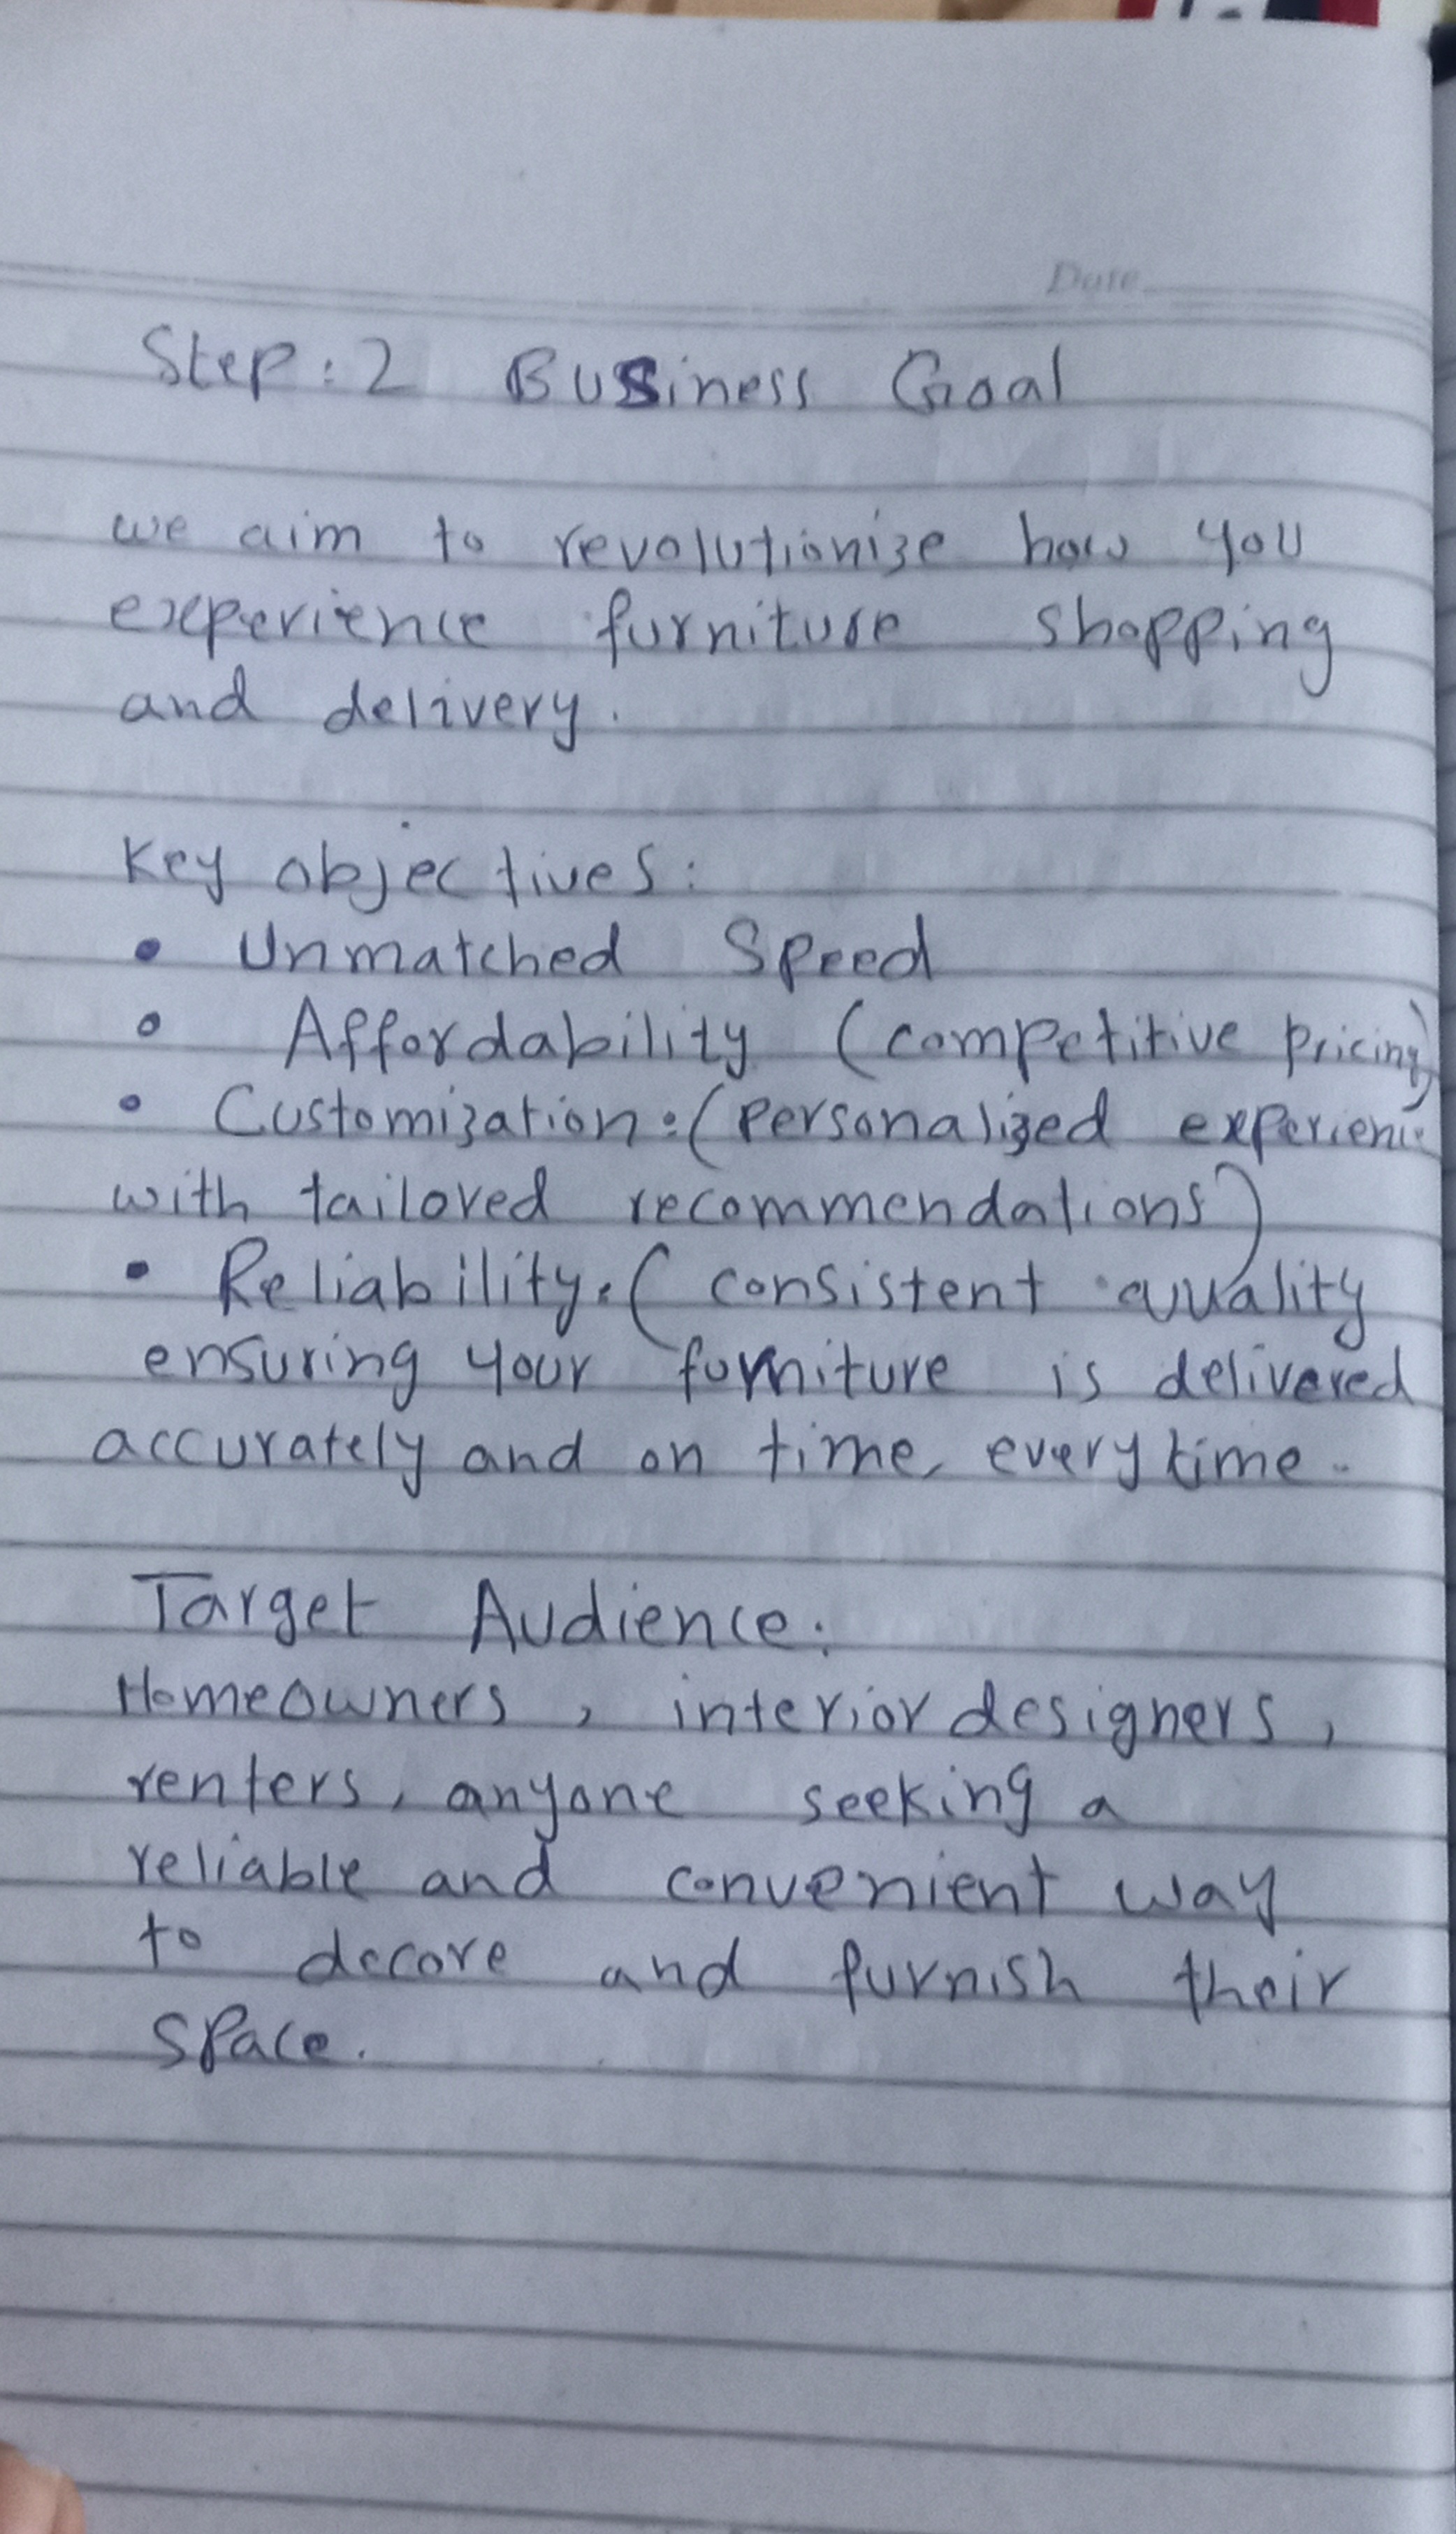 Date
Step:2 Business Goal
we aim to revolutionize how you
experience furniture shopping
and delivery.
Key objectives:
• Unmatched Speed
• Affordability (competitive pricing)
• Customization:(personalized experience
with tailored recommendations)
• Reliability:( consistent quality
ensuring your furniture is delivered
accurately and on time, everytime.
Target Audience:
Homeowners, interior designers,
renters, anyone seeking a
reliable and convenient way
to decore and furnish their
space.